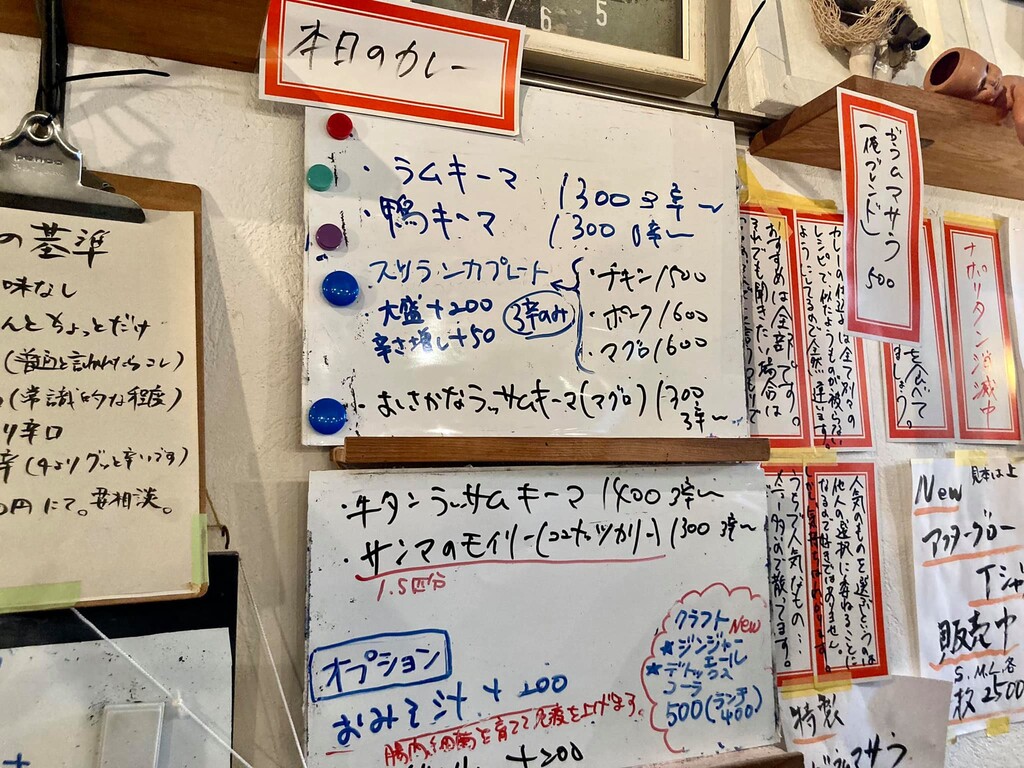 本日のカレー
・ラムキーマ 1300 3辛〜
・鴨キーマ 1300 0辛〜
スリランカプレート
・大盛+200
辛さ増し+50
3辛のみ
・チキン1500
・ポーク1600
・マグロ1600
・おさかなラッサムキーマ(マグロ)1300
3辛〜
・牛タンラッサムキーマ 1400 3辛〜
・サンマのモイリー(ココナッツカリー)1300 3辛〜
1.5匹分
オプション
おみそ汁 +200
腸内細菌を育てて免疫を上げます。
+200
クラフト New
★ジンジャーエール
★デトックス
コーラ
500(ランチ400)
の基準
味なし
んとちょっとだけ
(常識的な程度)
り辛口
辛(4よりグッと辛いです)
0円にて。要相談。
penco
6 5
がラムマサラ
「俺ブレンド」
500
ナポリタン消滅中
カレーの仕込みは全て別々の
レシピで似たようなものが被らない
ようにしてるので全然違います。
おすすめは全部です。
それでも聞きたい場合は
人気のものを選ぶというのは
他人の選択に委ねることに
なるので好きではありません。
うちで人気なもの…
New 見本は上
アフターグロー
Tシャ
販売中
S.M.L各
枚2500
特製
マサラ